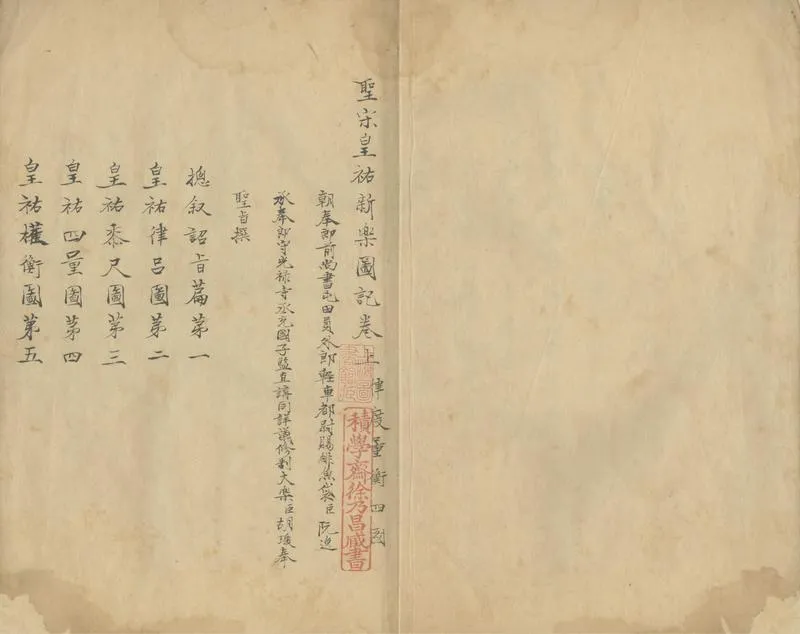 聖宋皇祐新樂圖記卷上 律度量衡四圖
朝奉郎前尚書屯田員外郎輕車都尉賜緋魚袋臣阮逸
承奉郎守光祿寺丞充國子監直講同詳議修制大樂臣胡瑗奉
聖旨撰
摠叙詔旨篇第一
皇祐律呂圖第二
皇祐黍尺圖第三
皇祐四量圖第四
皇祐權衡圖第五
積學齋徐乃昌藏書